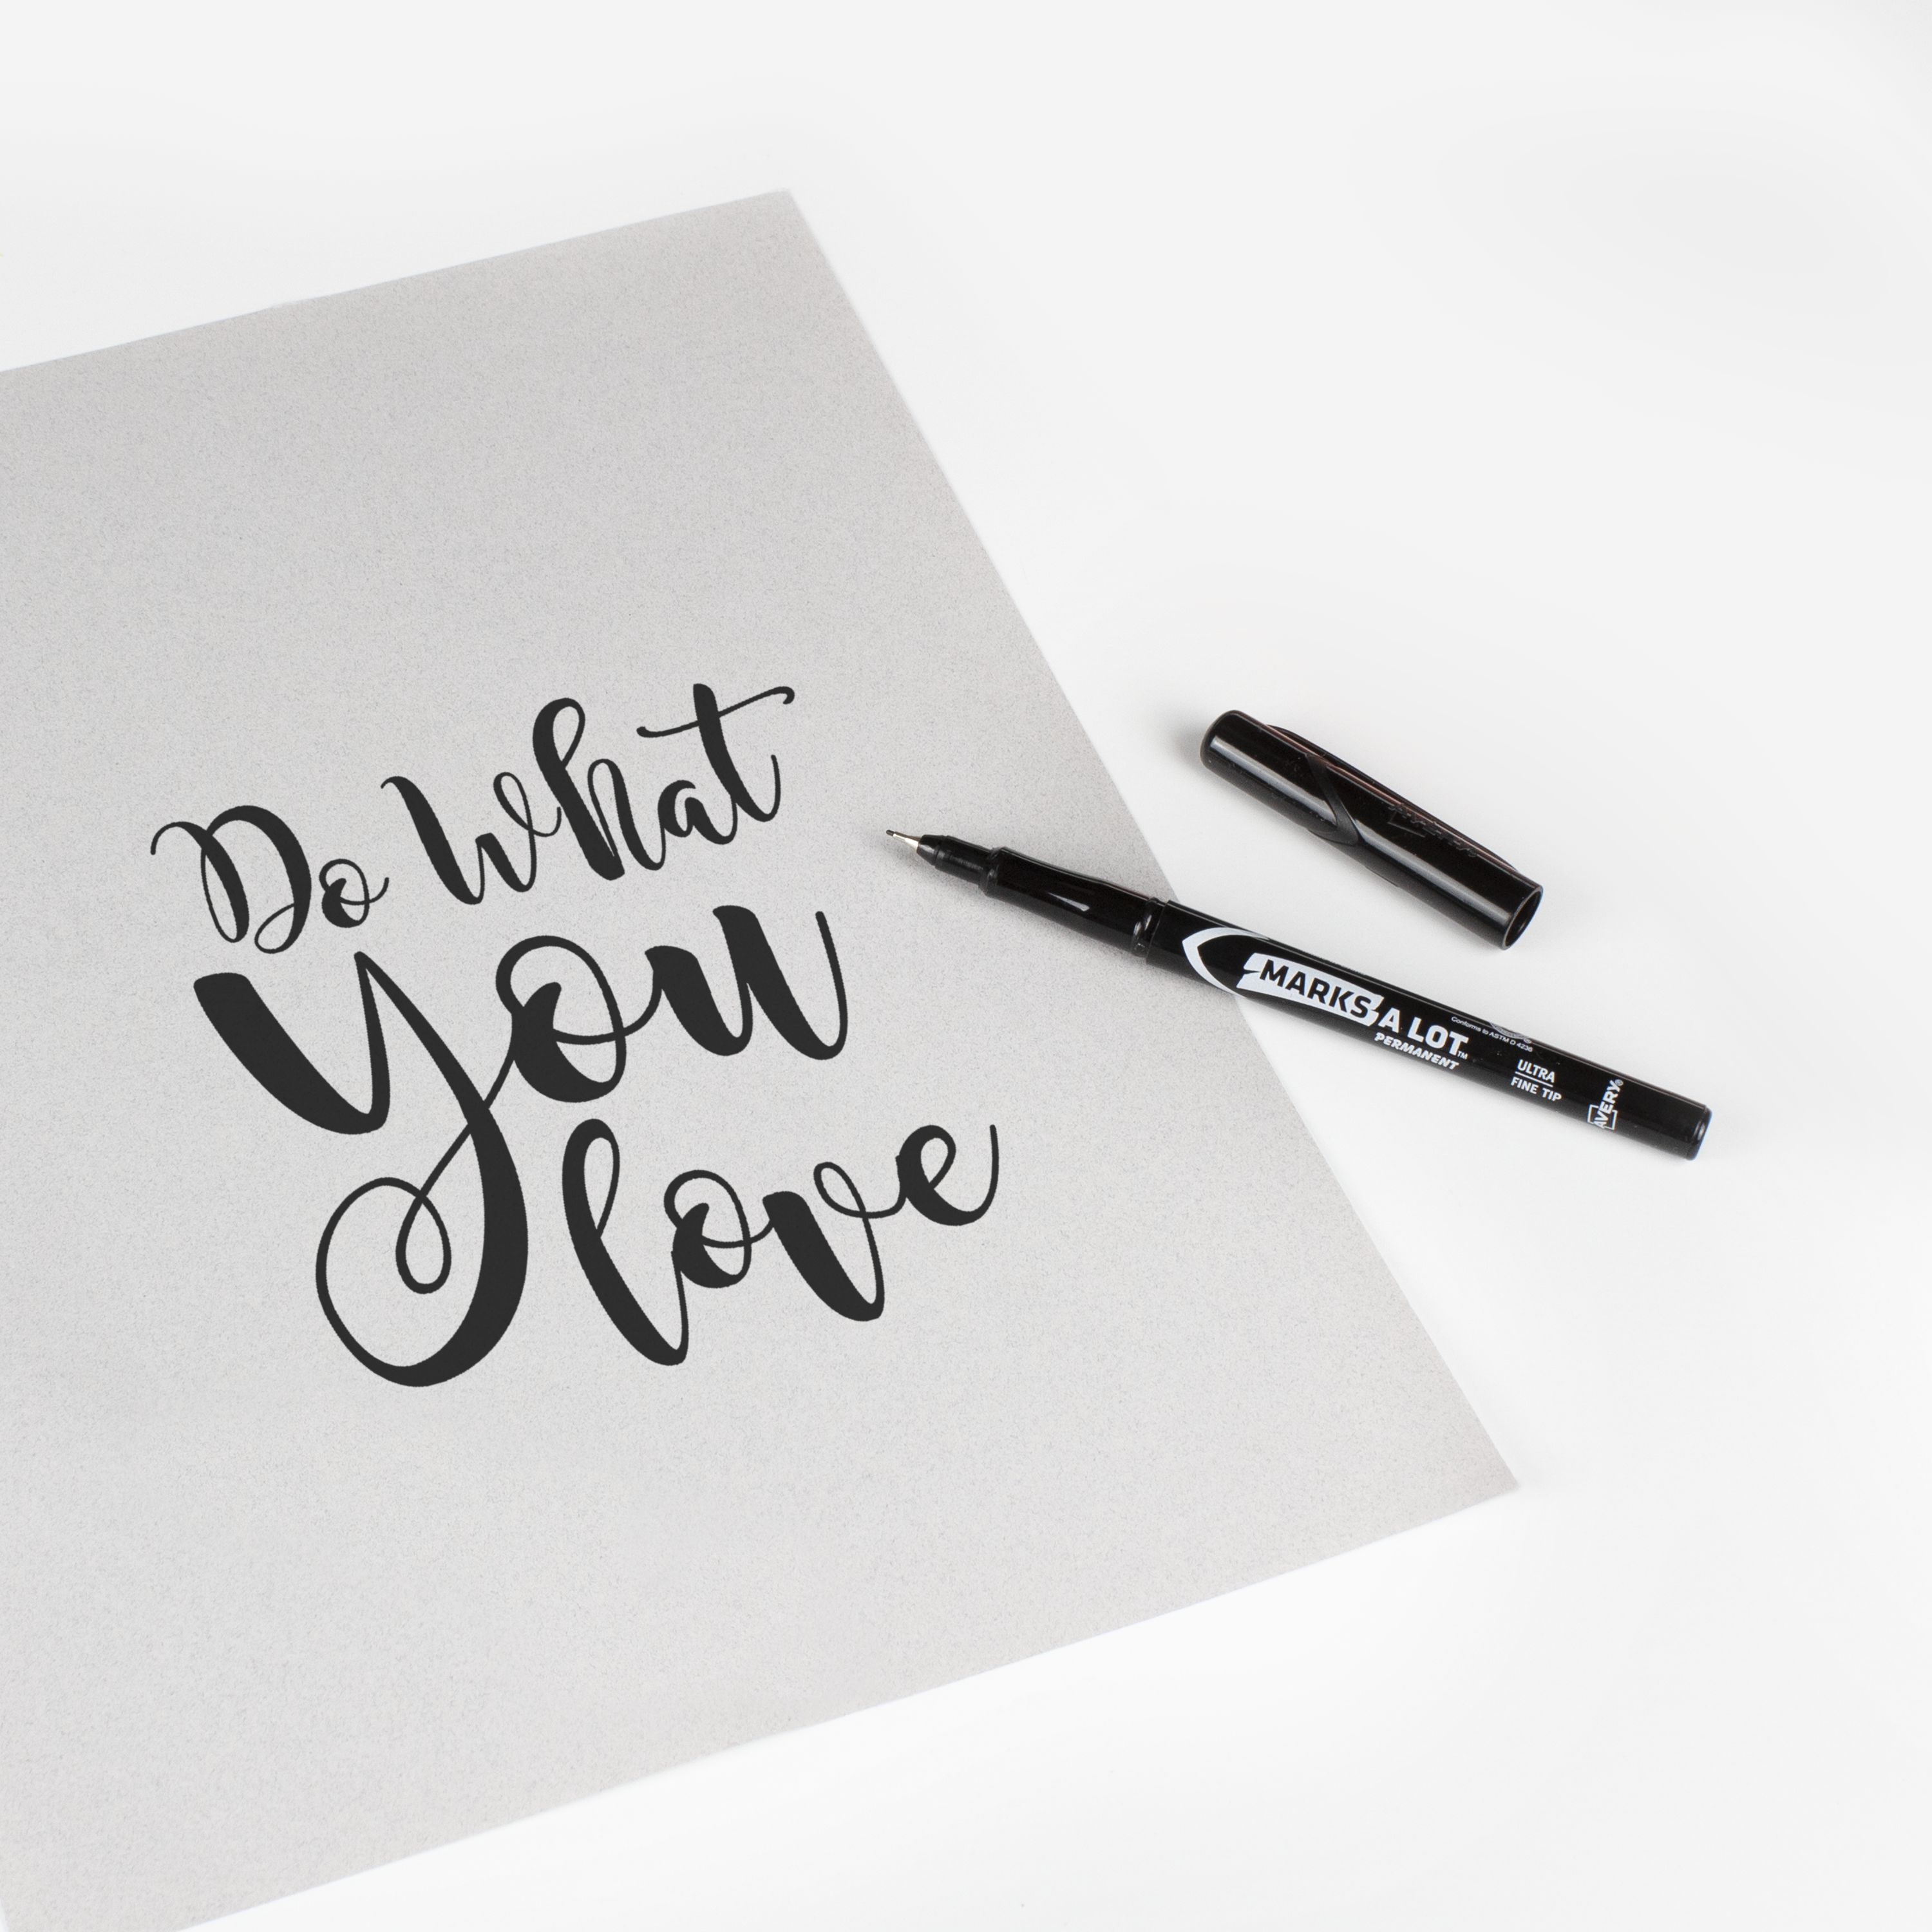 Do What
You
love
MARKS A LOT™
PERMANENT
Conforms to ASTM D 4236
ULTRA
FINE TIP
AVERY®